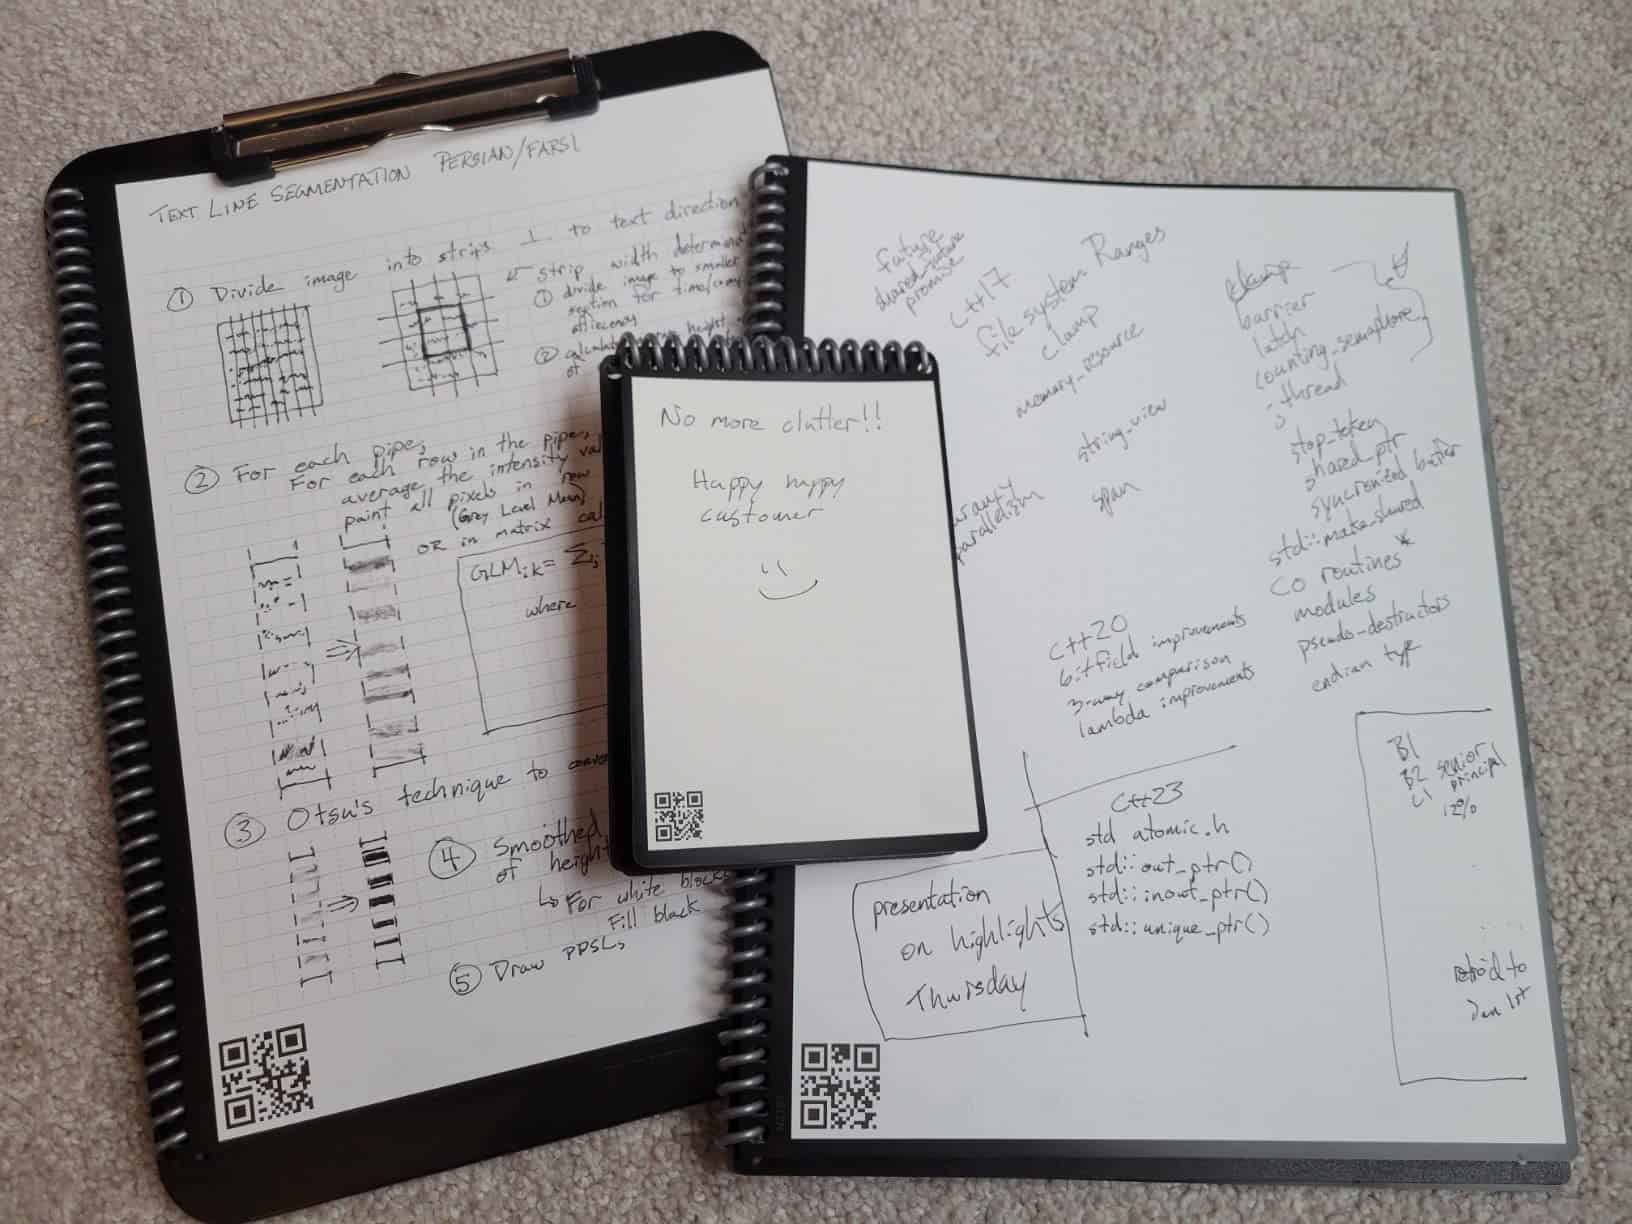 TEXT LINE SEGMENTATION PERSIAN/FARSI
① Divide image into strips ⊥ to text direction
strip width determin
① divide image to smaller
section for time/
effiecency
② calculat height,
of
② For each pipe,
For each row in the pipe,
average the intensity va
paint all pixels in row
(Grey Level Mean)
OR in matrix cal
GLMik= Σi
where
③ Otsu's technique to conve
④ Smoothed
of height
↳ For white blocks
Fill black
⑤ Draw PPSL,
No more clutter!!
Happy happy
customer
future
shared_future
promise
C++17
file system Ranges
clamp
memory_resource
string_view
span
parallelism
C++20
bitfield improvements
3-way comparison
lambda improvements
barrier
latch
counting_semaphore
j-thread
stop_token
shared_ptr
syncronized buffer
std::make_shared
co routines*
modules
pseudo-destructors
endian type
C++23
std atomic.h
std::out_ptr()
std::inout_ptr()
std::unique_ptr()
presentation
on highlights
Thursday
B1
B2 senior
C1 principal
12%
retro'd to
Jan 1st